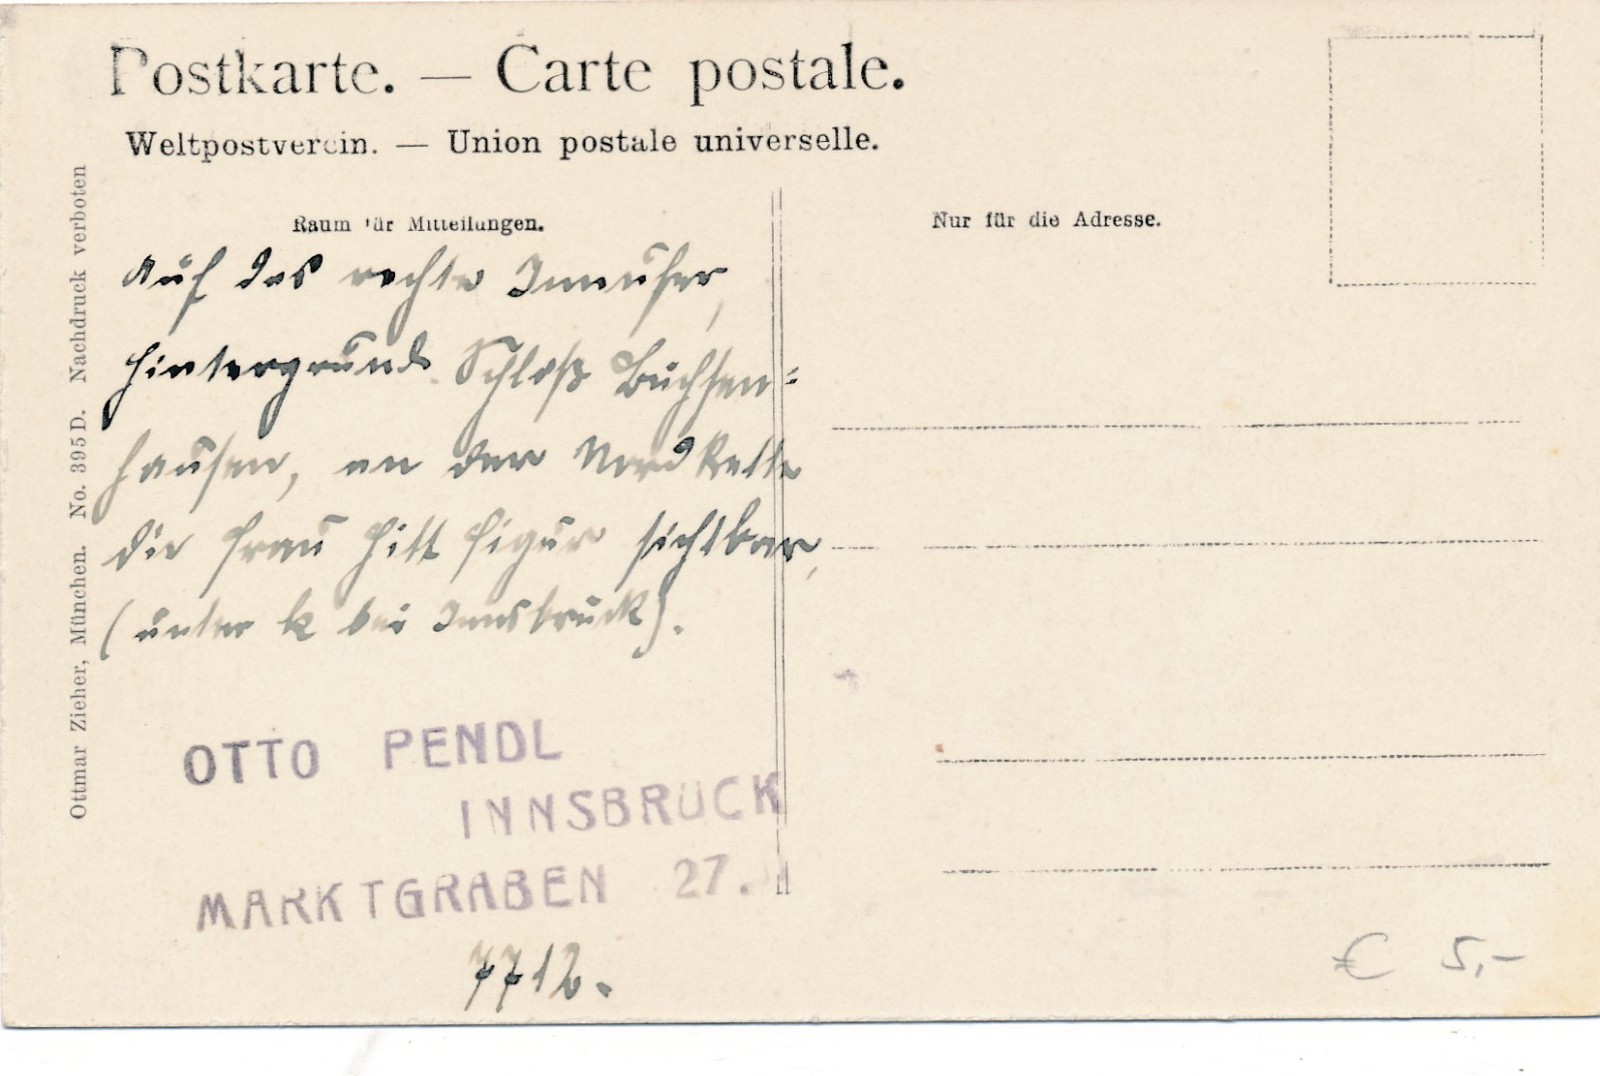 Postkarte. — Carte postale.
Weltpostverein. — Union postale universelle.
Raum für Mitteilungen.
Nur für die Adresse.
auf das rechte Innufer,
Hintergrund Schloß Büchsen=
hausen, an der Nordkette
die Frau Hitt Figur sichtbar,
(unter k bei Innsbruck).
OTTO PENDL
INNSBRUCK
MARKTGRABEN 27.
7712.
€ 5,-
Ottmar Zieher, München. No. 395 D. Nachdruck verboten